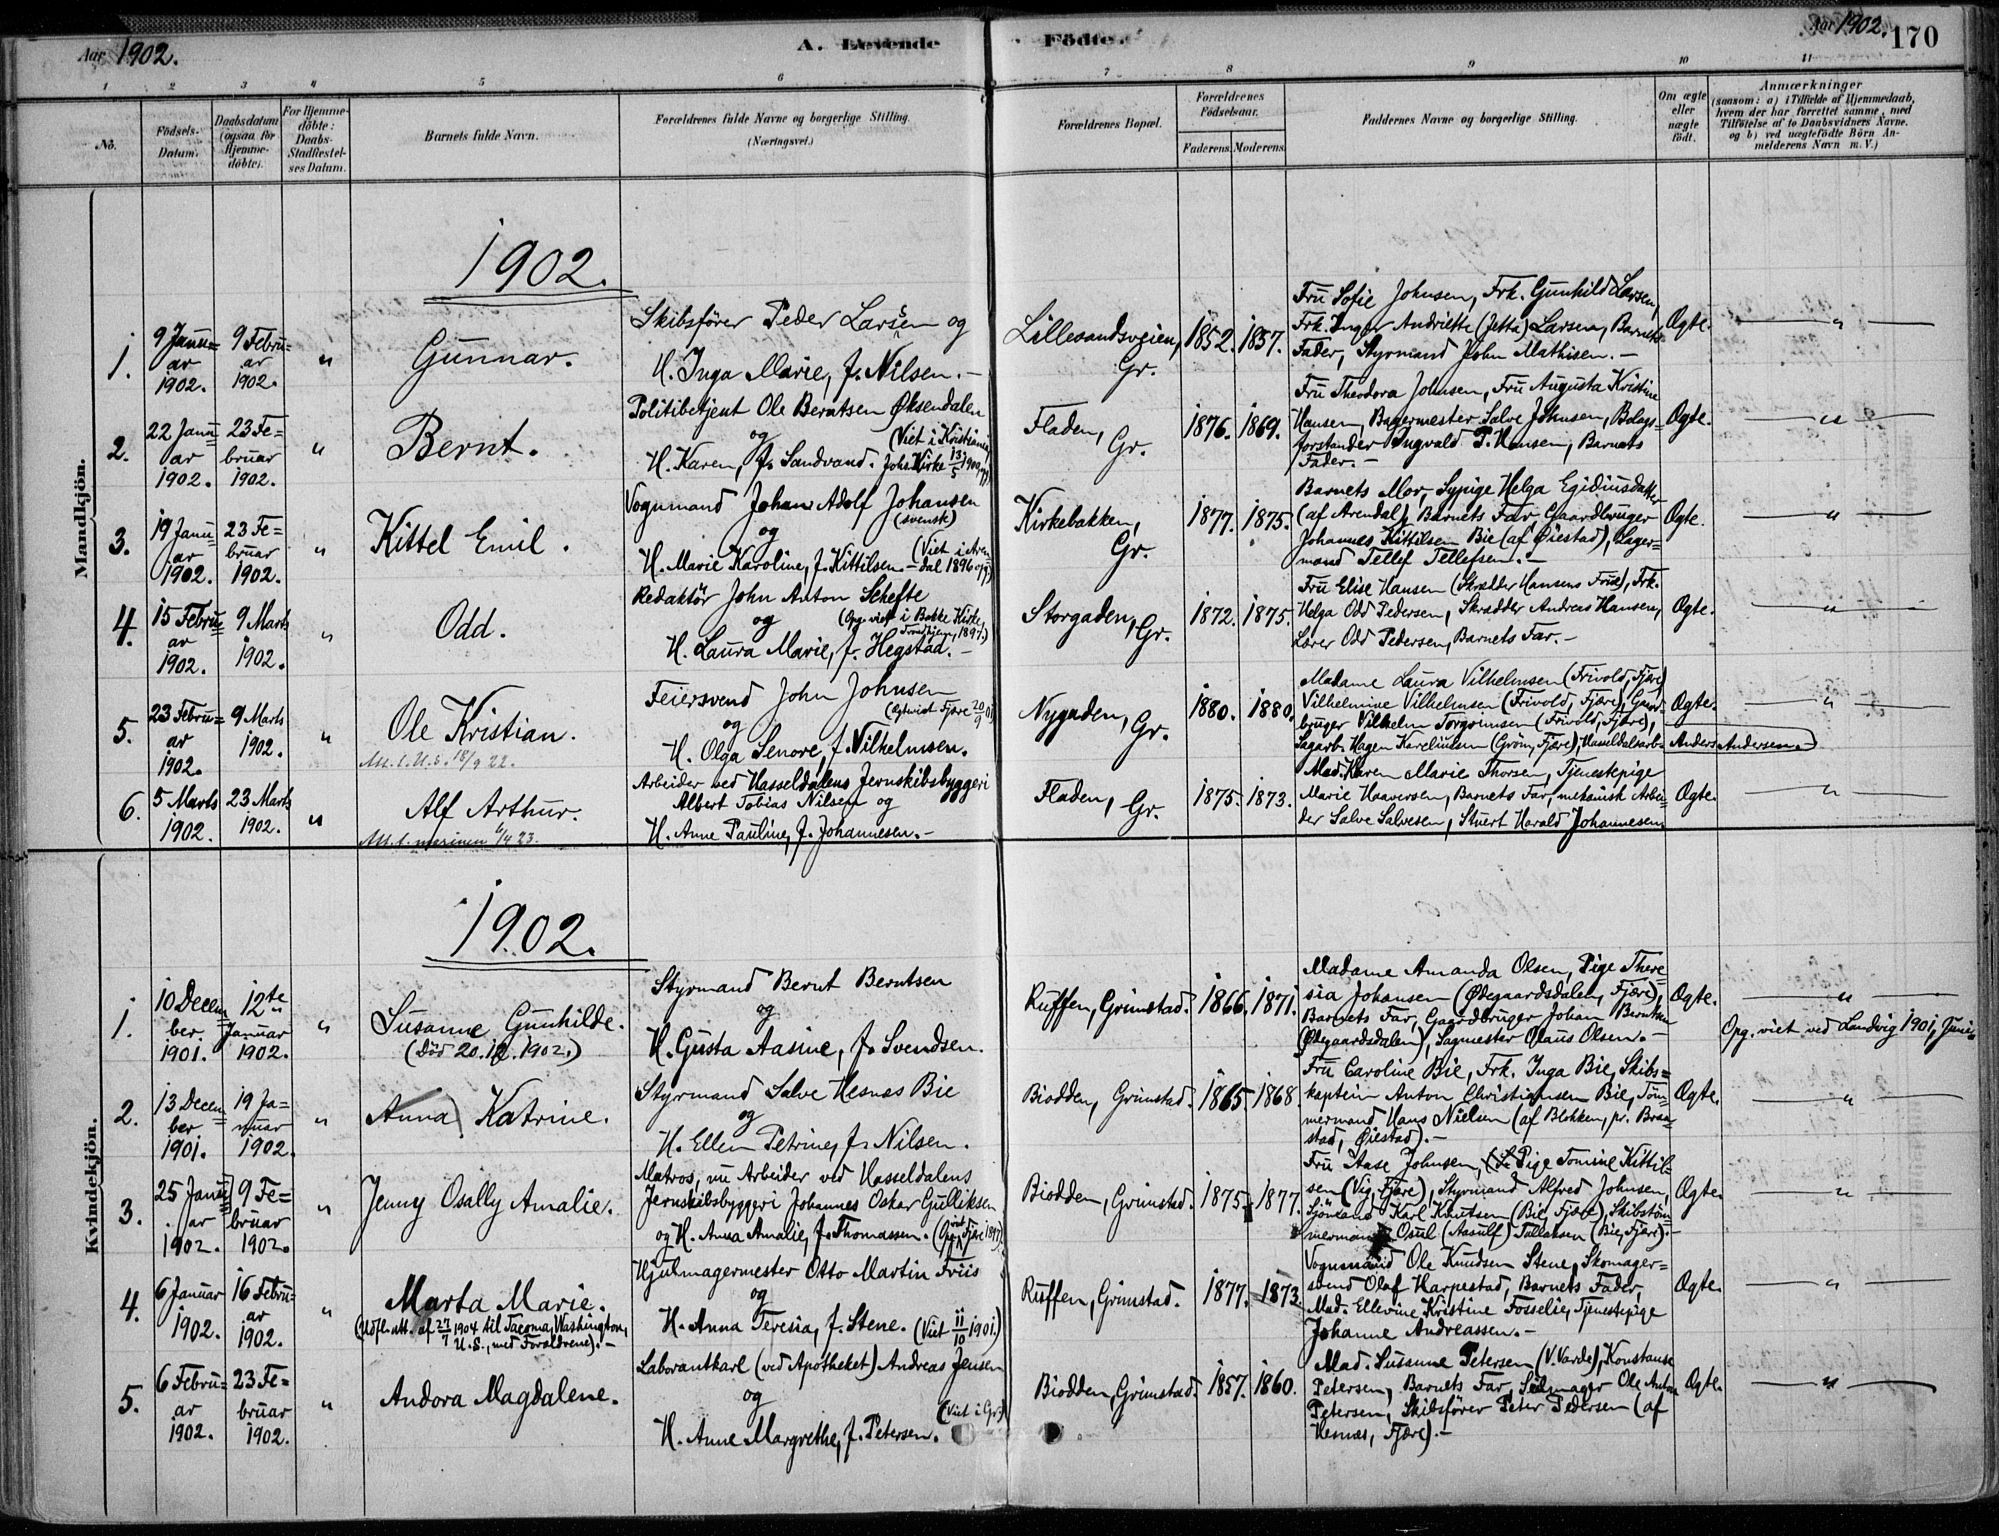 Aar 1902.
A. Levende Födte.
Aar 1902. 170
1 2 3 4 5 6 7 8 9 10 11
No.
Födsels-Datum.
Daabsdatum (ogsaa for Hjemme-döbte).
For Hjemme-döbte: Daabs-Stadfæstel-ses Datum.
Barnets fulde Navn.
Forældrenes fulde Navne og borgerlige Stilling. (Næringsvei.)
Forældrenes Bopæl.
Forældrenes Födselsaar.
Faderens. Moderens.
Faddernes Navne og borgerlige Stilling.
Om ægte eller uægte födt.
Anmærkninger
(saasom: a) i Tilfælde af Hjemmedaab,
hvem der har forrettet samme, med
Tilföielse af to Daabsvidners Navne.
og b) ved uægtefödte Börn An-
melderens Navn m. V.)
Mandkjön.
1902.
1. 9 Janu=ar 1902. 9 Febru=ar 1902. " Gunnar.
Skibsförer Peder Larsen og
H. Inga Marie, f. Nilsen.-
Lillesandsveien, Gr. 1852. 1857.
Fru Sofie Johnsen, Frk. Gunhild Larsen,
Frk. Inger Andriette (Jetta) Larsen, Barnets
Fader, Styrmand John Mathisen.-
Ægte. — " —
2. 22 Janu=ar 1902. 23 Fe=bruar 1902. " Bernt.
Politibetjent Ole Berntsen Øksendalen
og (Viet i Kristiania,
H. Karen, f. Sandvand. Johs Kirke 13/5 1900
Fladen, Gr. 1876. 1869.
Fru Theodora Johnsen, Fru Augusta Kristine
Hansen, Bagermester Salve Johnsen, Bolags=
forstander Ingvald P. Hansen, Barnets
Fader.-
Ægte. — " —
3. 19 Janu=ar 1902. 23 Fe=bruar 1902. " Kittel Emil.
Vognmand Johan Adolf Johansen
og (svensk)
H. Marie Karoline, f. Kittilsen.- (Viet i Aren=dal 1896
Kirkebakken, Gr. 1877. 1875.
Barnets Mor, Sypige Helga Egidiusdatter
(af Arendal), Barnets Far, Gaardbruger
Johannes Kittilsen Bie (af Øiestad), Lager=
mand Tellef Tellefsen.-
Ægte. — " —
4. 15 Febru=ar 1902. 9 Marts 1902. " Odd.
Redaktör John Anton Schefte
og (Opg. viet i Bakke Kirke, Trondhjem, 1897.)
H. Laura Marie, f. Hegstad.-
Storgaden, Gr. 1872. 1875.
Fru Elise Hansen (Skrædder Hansens Frue), Frk.
Helga Odd Pedersen, Skrædder Andreas Hansen,
Lærer Odd Pedersen, Barnets Far.-
Ægte. — " —
5. 23 Febru=ar 1902. 9 Marts 1902. " Ole Kristian.
Att. t. U.S. 18/9 22.
Feiersvend John Johnsen
og
H. Olga Lenore, f. Vilhelmsen.
Nygaden, Gr. 1880. 1880.
Madame Laura Vilhelmsen (Frivold, Fjære)
Vilhelmine Vilhelmsen (Frivold, Fjære), Gaard=
bruger Vilhelm Torgrimsen (Frivold, Fjære),
Sagarb. Hagen Kareliussen (Gröm, Fjære), Hasseldalsarb. Anders Andersen.-
Ægte. — " —
6. 5 Marts 1902. 23 Marts 1902. " Alf Arthur.
Att. t. marinen 6/4 23.
Arbeider ved Hasseldalens Jernskibsbyggeri
Albert Tobias Nilsen og
H. Anne Pauline, f. Johannesen.-
Fladen, Gr. 1875. 1873.
Mad. Karen Marie Thorsen, Tjenestepige
Marie Haaversen, Barnets Far, mekanisk Arbei=
der Salve Salvesen, Stuert Harald Johannesen
Ægte. — " —
Kvindekjön.
1902.
1. 10 Decem=ber 1901. 12te Januar 1902. " Susanne Gunhilde.
(Död 20.12.1902.)
Styrmand Bernt Berntsen
og
H. Gusta Aasine, f. Svendsen.
Ruffen, Grimstad. 1866. 1871.
Madame Amanda Olsen, Pige There=
sia Johansen (Ødegaardsdalen, Fjære),
Barnets Far, Gaardbruger Johan Berntsen
(Ødegaardsdalen), Sagmester Olaus Olsen.-
Ægte. — " —
Opg. viet ved Landvig 1901, Juni.
2. 13 Decem=ber 1901. 19 Ja=nuar 1902. " Anna Katrine.
Styrmand Salve Hesnæs Bie
og
H. Ellen Petrine, f. Nilsen.
Biodden, Grimstad. 1865. 1868.
Fru Caroline Bie, Frk. Inga Bie, Skibs=
kaptein Anton Christiansen Bie, Töm=
mermand Hans Nielsen (af Blekken, pr. Braa=
stad, Øiestad).-
Ægte. — " —
3. 25 Janu=ar 1902. 9 Fe=bruar 1902. " Jenny Osally Amalie.
Matros, nu Arbeider ved Hasseldalens
Jernskibsbyggeri Johannes Oskar Gulliksen
og H. Anna Amalie, f. Thomassen. (Opg. viet Fjære 1897).
Biodden, Grimstad. 1875. 1877.
Fru Aase Johnsen, Pige Tomine Kittil=
sen (Vig, Fjære), Styrmand Alfred Johnsen,
Sjömand Karl Knutsen (Bie, Fjære), Skibstöm=
mermand Osul (Aasulf) Tallaksen (Bie, Fjære).-
Ægte. — " —
4. 6 Januar 1902. 16 Febru=ar 1902. " Marta Marie.
(Udfl. Att. af 27/7 1904 til Tacoma, Washington,
U.S., med Forældrene).-
Hjulmagermester Otto Martin Friis
og
H. Anna Teresia, f. Stene. (Viet 11/10 1901.)
Ruffen, Grimstad. 1877. 1873.
Vognmand Ole Knudsen Stene, Skomager=
svend Olaf Harpestad, Barnets Fader,
Mad. Ellevine Kristine Fosselie, Tjenestepige
Johanne Andreassen.-
Ægte. — " —
5. 6 Febru=ar 1902. 23 Fe=bruar 1902. " Andora Magdalene.
Laborantkarl (ved Apotheket) Andreas Jensen
og (Viet i Gr.)
H. Anne Margrethe, f. Petersen.
Biodden, Grimstad. 1857. 1860.
Mad. Susanne Petersen (V. Varde), Konstanse
Petersen, Barnets Far, Seilmager Ole Anton
Petersen, Skibsförer Peter Pedersen (af
Hesnæs, Fjære).-
Ægte. — " —